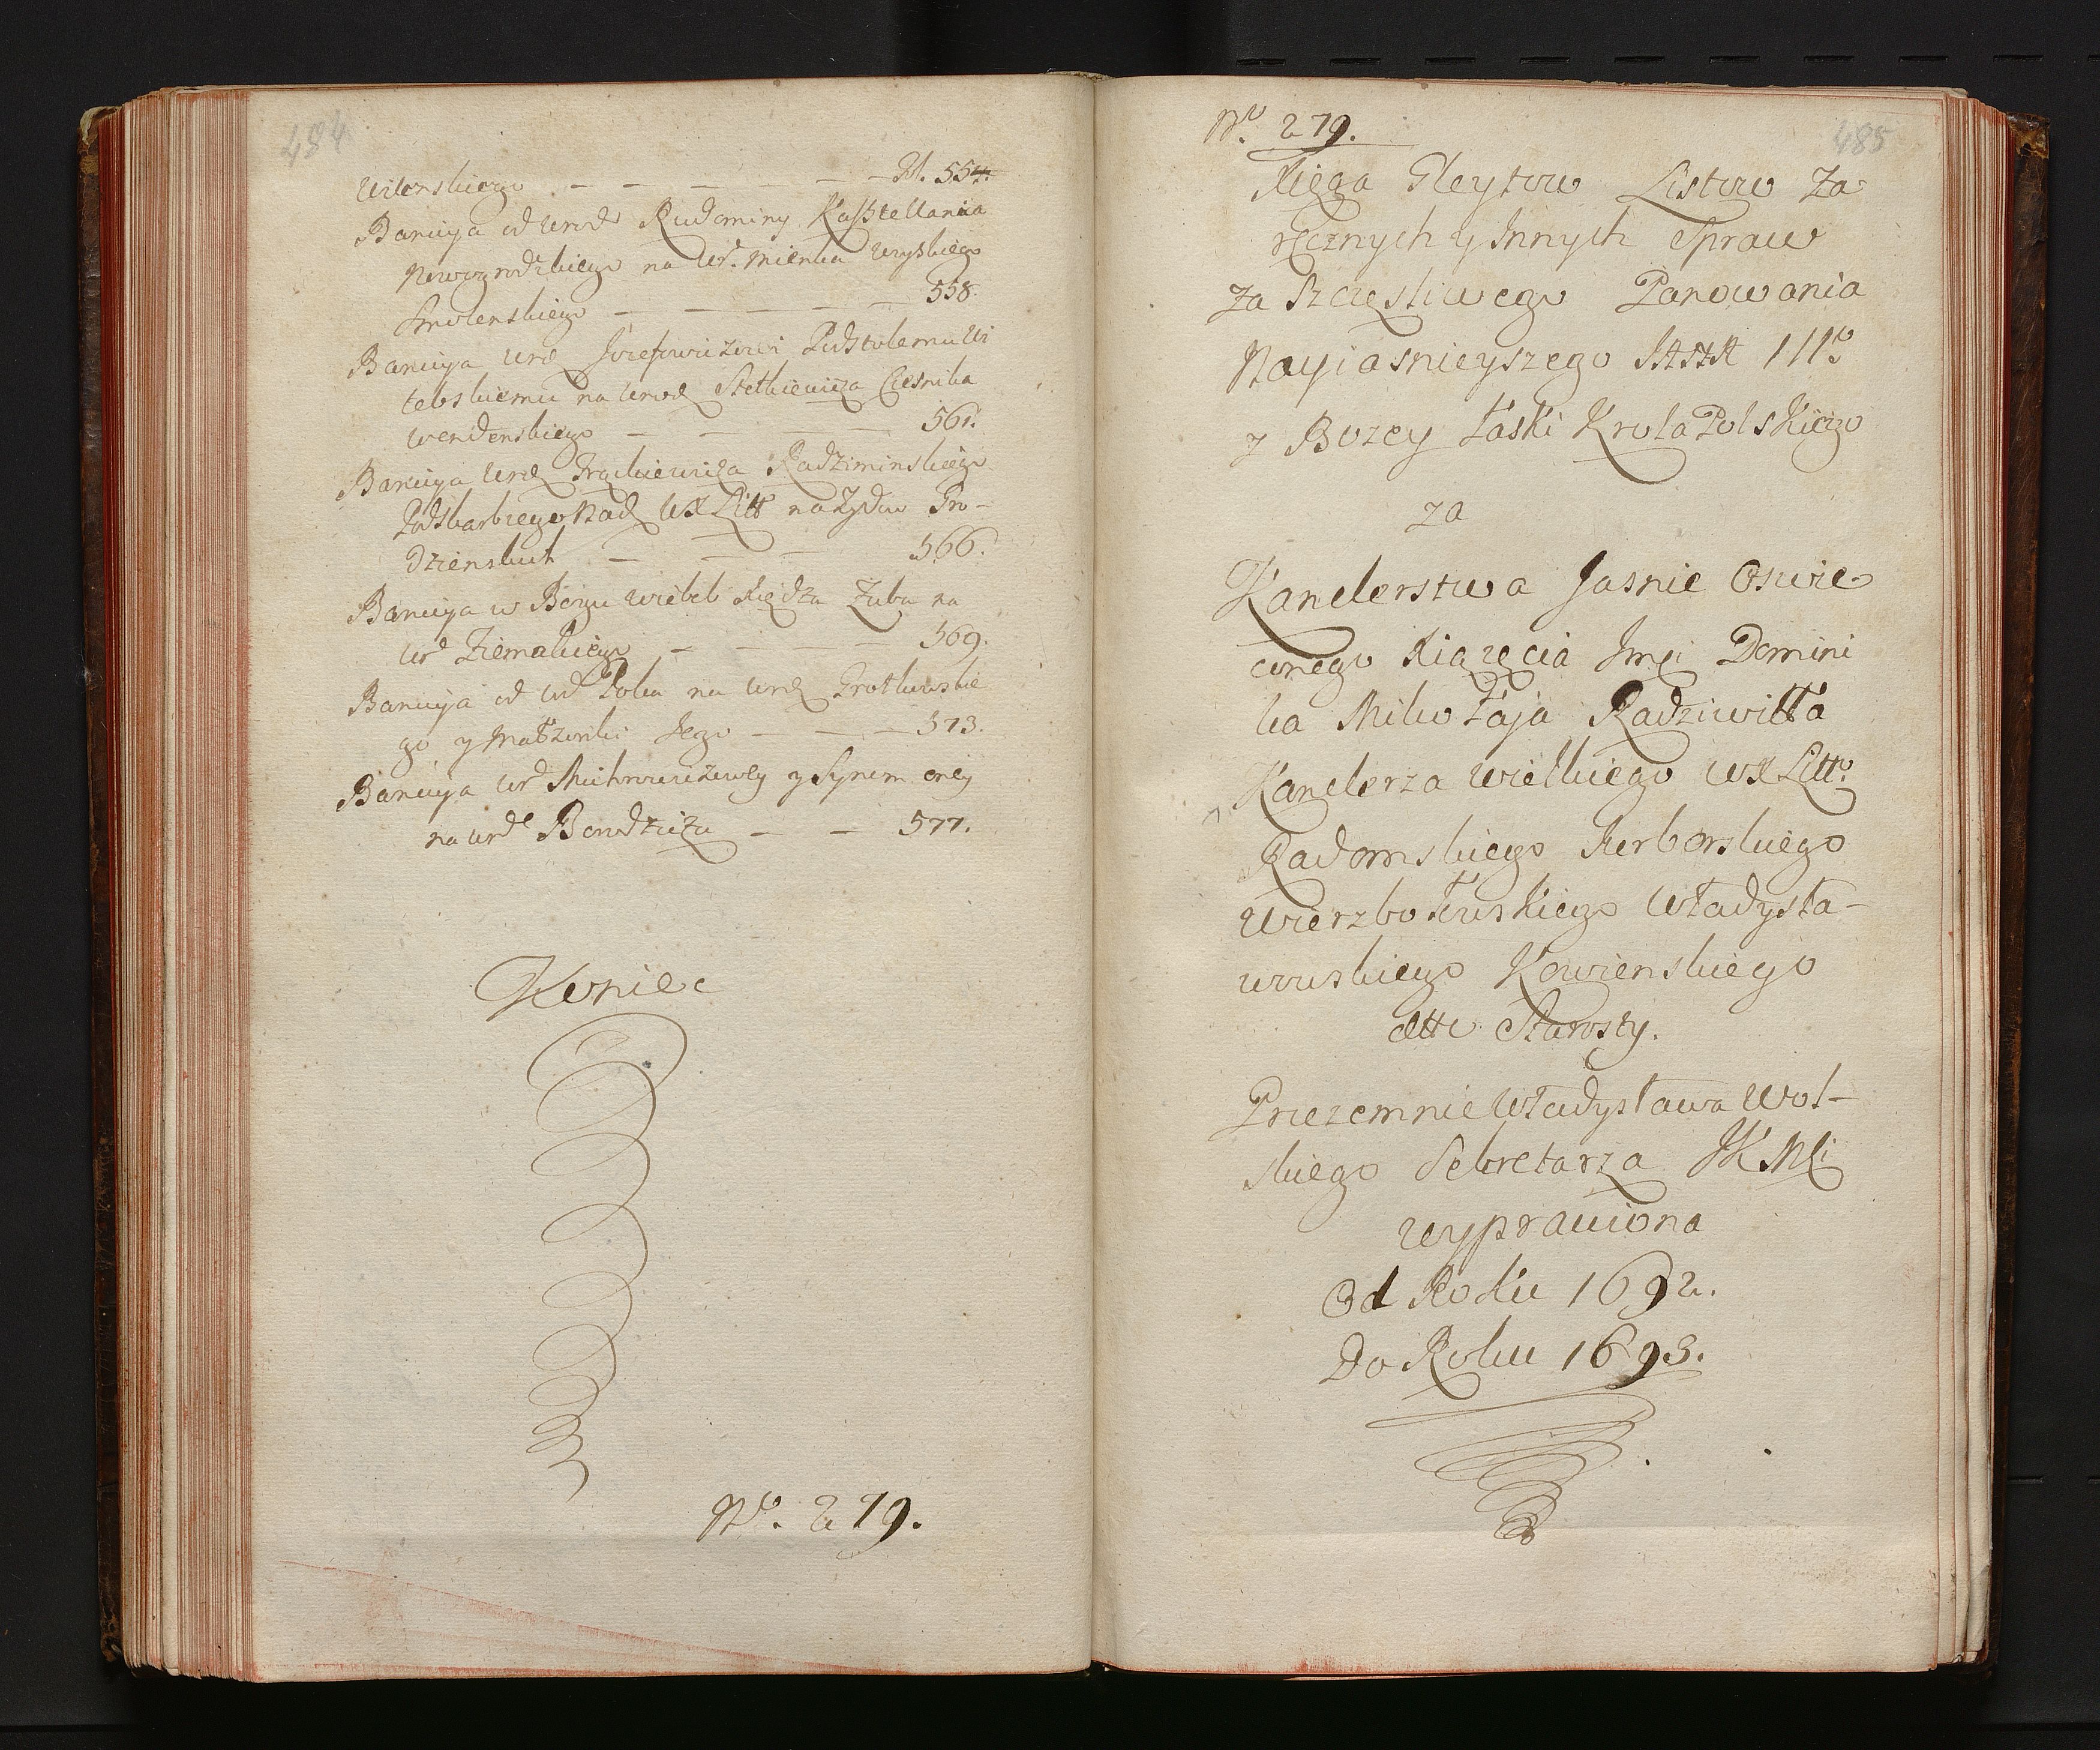 484
Wilenskiego — — — — — — Fol. 554.
Banicya od Urod Rudominy Kasztellania
Nowogrodzkiego na Ur.
Smolenskiego — — — — — 558.
Banicya Urod Jozefowiczowi Podstolemu Wi
tebskiemu na Urod Stetkiewicza Czesnika
Wendenskiego — — — — — 561.
Banicya Urod Radziminskiego
Podskarbiego Nad WX Litt na Zydow Gro-
dzienskich — — — — 566.
Banicya w Bogu Wieleb Xiędza Zuba na
Urd Ziemackiego — — — — 569.
Banicya od Urd na Urod Grotkowskie
go y Małzonki Jego — — — 573.
Banicya Urd y Synem oney
na Urdz — — 577.
Koniec
No. 279.
485
No. 279.
Xięga Gleytow Listow Za
ręcznych y Innych Spraw
za Szczęsliwego Panowania
Nayiasnieyszego 111o
z Bozey Łaski Krola Polskiego
za
Kanclerstwa Jasnie Oswie
conego Xiązęcia Jmci Domini
ka Mikołaja Radziwiłła
Kanclerza Wielkiego WX Litto
Radomskiego
Wierzbołowskiego Władysła-
wowskiego Kowienskiego
ettc Starosty.
Przezemnie Władysława Wol-
skiego Sekretarza JK Mci
wyprawiona
Od Roku 1692.
Do Roku 1693.